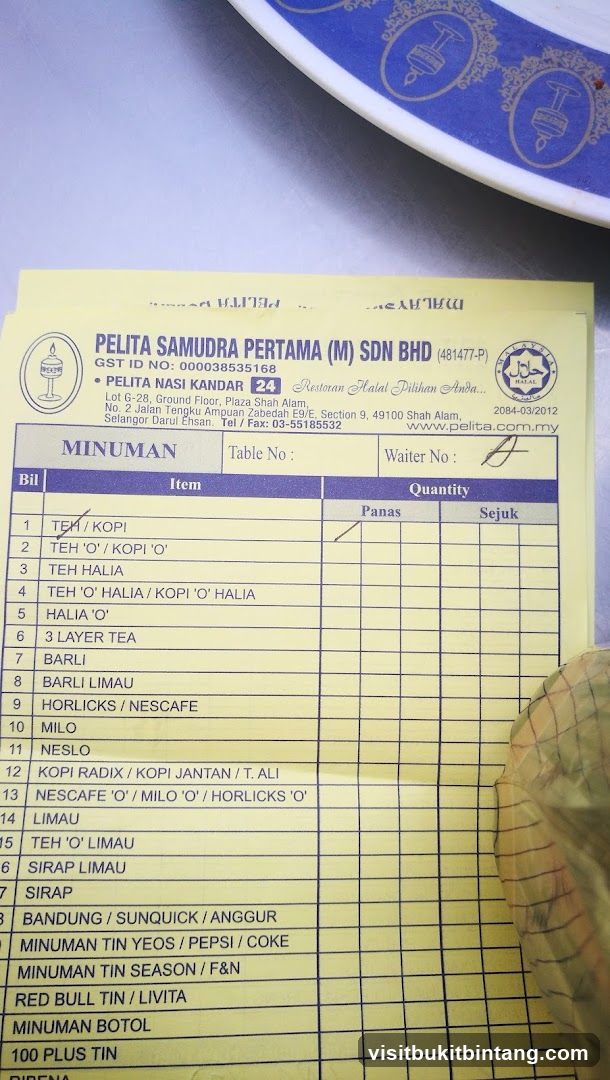 PELITA SAMUDRA PERTAMA (M) SDN BHD (481477-P)
GST ID NO: 000038535168
• PELITA NASI KANDAR 24 Restoran Halal Pilihan Anda...
Lot G-28, Ground Floor, Plaza Shah Alam,
No. 2 Jalan Tengku Ampuan Zabedah E9/E, Section 9, 49100 Shah Alam,
Selangor Darul Ehsan. Tel / Fax: 03-55185532
MALAYSIA
HALAL
2084-03/2012
www.pelita.com.my
MINUMAN Table No : Waiter No :
Bil Item Quantity
Panas Sejuk
1 TEH / KOPI
2 TEH 'O' / KOPI 'O'
3 TEH HALIA
4 TEH 'O' HALIA / KOPI 'O' HALIA
5 HALIA 'O'
6 3 LAYER TEA
7 BARLI
8 BARLI LIMAU
9 HORLICKS / NESCAFE
10 MILO
11 NESLO
12 KOPI RADIX / KOPI JANTAN / T. ALI
13 NESCAFE 'O' / MILO 'O' / HORLICKS 'O'
14 LIMAU
15 TEH 'O' LIMAU
6 SIRAP LIMAU
7 SIRAP
BANDUNG / SUNQUICK / ANGGUR
MINUMAN TIN YEOS / PEPSI / COKE
MINUMAN TIN SEASON / F&N
RED BULL TIN / LIVITA
MINUMAN BOTOL
100 PLUS TIN
RIBENA
visitbukitbintang.com